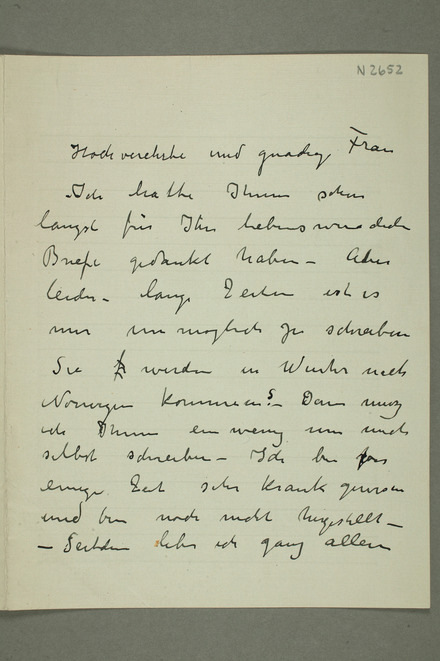 N 2652
Hochverehrte und gnadige Frau
Ich hatte Ihnen schon
langst für Ihre liebenswurdich
Briefe gedankt haben – Aber
leider – lange Zeiten ist es
mir unmoglich zu schreiben
Sie werden im Winter nach
Norwegen kommen? – Dann muss
ich Ihnen ein wenig um mich
selbst schreiben – Ich bin
einige Zeit sehr krank gewesen
und bin noch nicht hergestellt –
– Seitdem lebe ich ganz allein